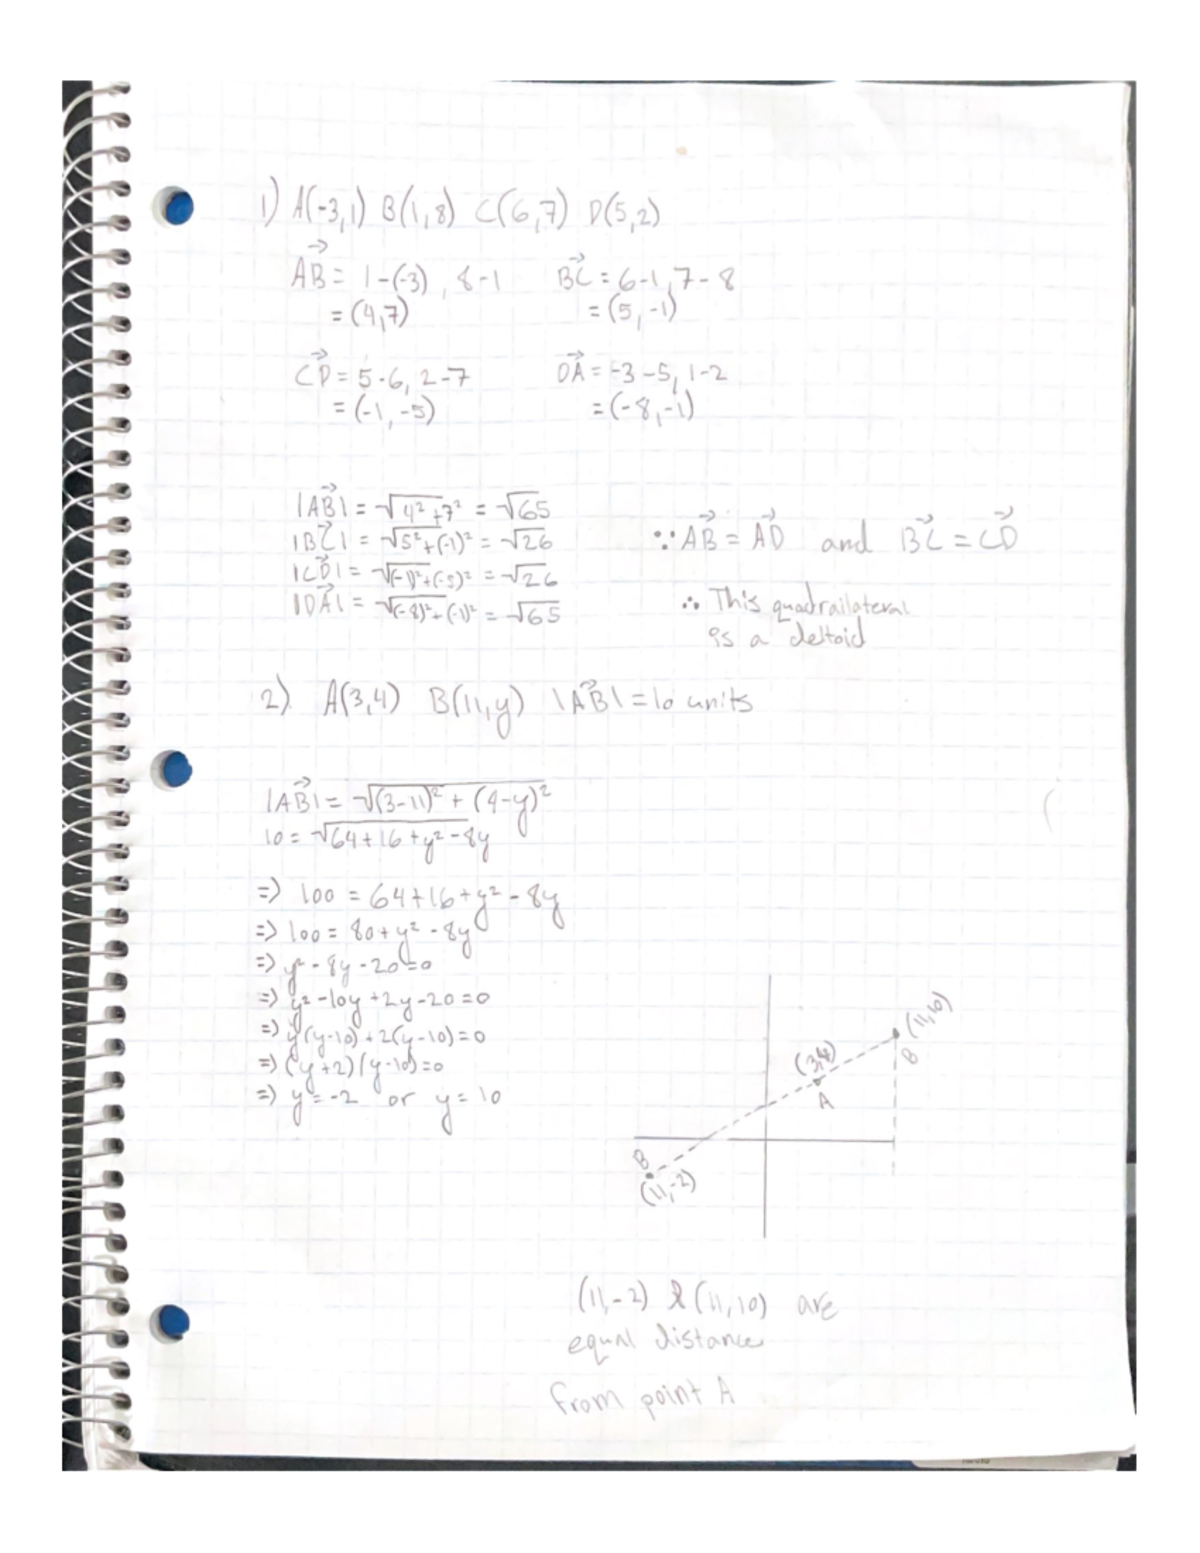 1) A(-3,1) B(1,8) C(6,7) D(5,2)
AB→ = 1-(-3), 8-1 BC→ = 6-1, 7-8
= (4,7) = (5,-1)
CD→ = 5-6, 2-7 DA→ = -3-5, 1-2
= (-1,-5) = (-8,-1)
|AB→| = √4²+7² = √65
|BC→| = √5²+(-1)² = √26 ∵ AB→ = AD→ and BC→ = CD→
|CD→| = √(-1)²+(-5)² = √26
|DA→| = √(-8)²+(-1)² = √65 ∴ This quadrailateral
is a deltoid
2) A(3,4) B(11,y) |AB→| = 10 units
|AB→| = √(3-11)² + (4-y)²
10 = √64+16+y²-8y
=> 100 = 64+16+y²-8y
=> 100 = 80+y²-8y
=> y²-8y-20=0
=> y²-10y+2y-20=0
=> y(y-10)+2(y-10)=0
=> (y+2)(y-10)=0
=> y=-2 or y=10
(11,10)
B
(3,4)
A
B
(11,-2)
(11,-2) & (11,10) are
equal distance
from point A